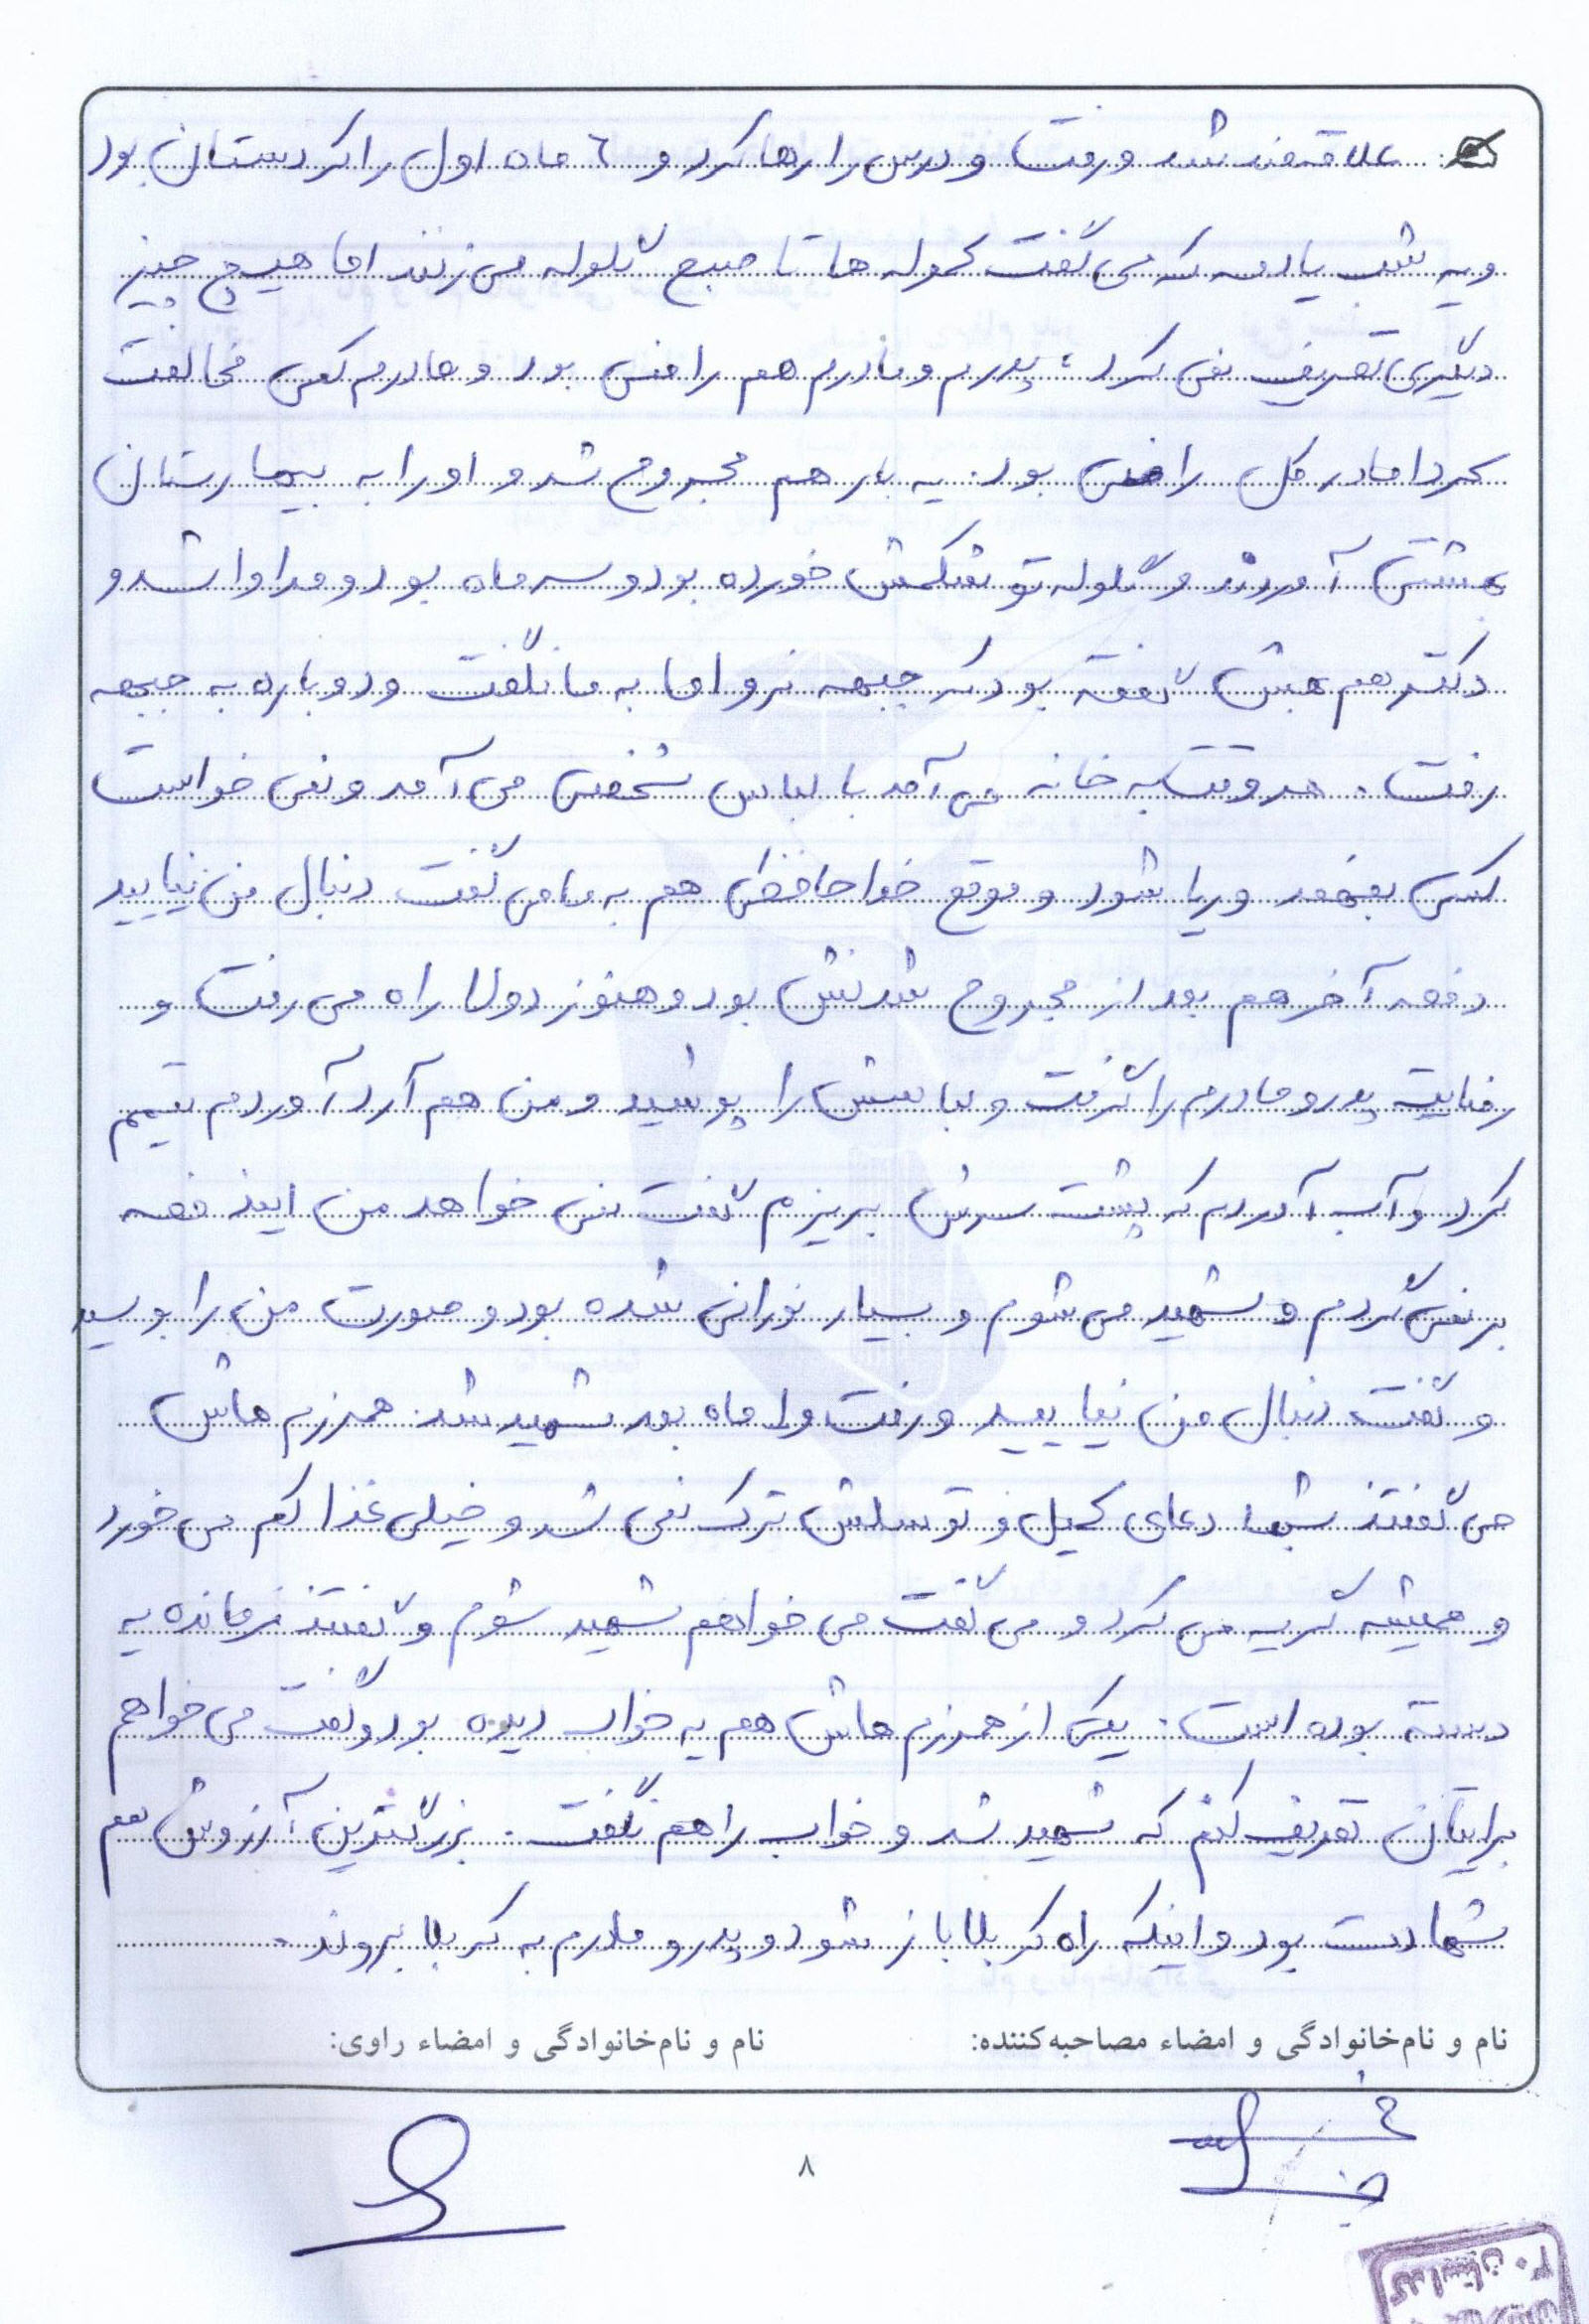 علاقمند شد و رفت و درس را رها کرد و ٦ ماه اول را کردستان بود
و یه شب یادمه که می گفت کموله ها تا صبح گلوله می زنند اما هیچ چیز
دیگری تعریف نمی کرد، پدرم و مادرم هم راضی بود و مادرم کمی مخالفت
کرد اما در کل راضی بود. یه بار هم مجروح شد و او را به بیمارستان
بهشتی آوردند و گلوله تو شکمش خورده بود و سه ماه بود و مداوا شد و
دکتر هم بهش گفته بود که جبهه نرو اما به ما نگفت و دوباره به جبهه
رفت. هر وقت به خانه می آمد با لباس شخصی می آمد و نمی خواست
کسی بفهمد و ریا شود و موقع خداحافظی هم به ما می گفت دنبال من نیایید
دفعه آخر هم بعد از مجروح شدنش بود و هنوز دولا راه می رفت و
رضایت پدر و مادرم را گرفت و لباسش را پوشید و من هم آرد آوردم تیمم
کرد و آب آوردم که پشت سرش بریزم گفت نمی خواهد من ایندفعه
بر نمی گردم و شهید می شوم و بسیار نورانی شده بود و صورت من را بوسید
و گفت دنبال من نیایید و رفت و ماه بعد شهید شد. همرزم هاش
می گفتند شبها دعای کمیل و توسلش ترک نمی شد و خیلی غذا کم می خورد
و همیشه گریه می کرد و می گفت می خواهم شهید شوم و گفتند فرمانده یه
دسته بوده است. یکی از همرزم هاش هم یه خواب دیده بود و گفت می خواهم
برایتان تعریف کنم که شهید شد و خواب را هم نگفت. بزرگترین آرزوش هم
شهادت بود و اینکه راه کربلا باز شود و پدر و مادرم به کربلا بروند.
نام و نام‌خانوادگی و امضاء مصاحبه‌کننده: نام و نام‌خانوادگی و امضاء راوی:
٨